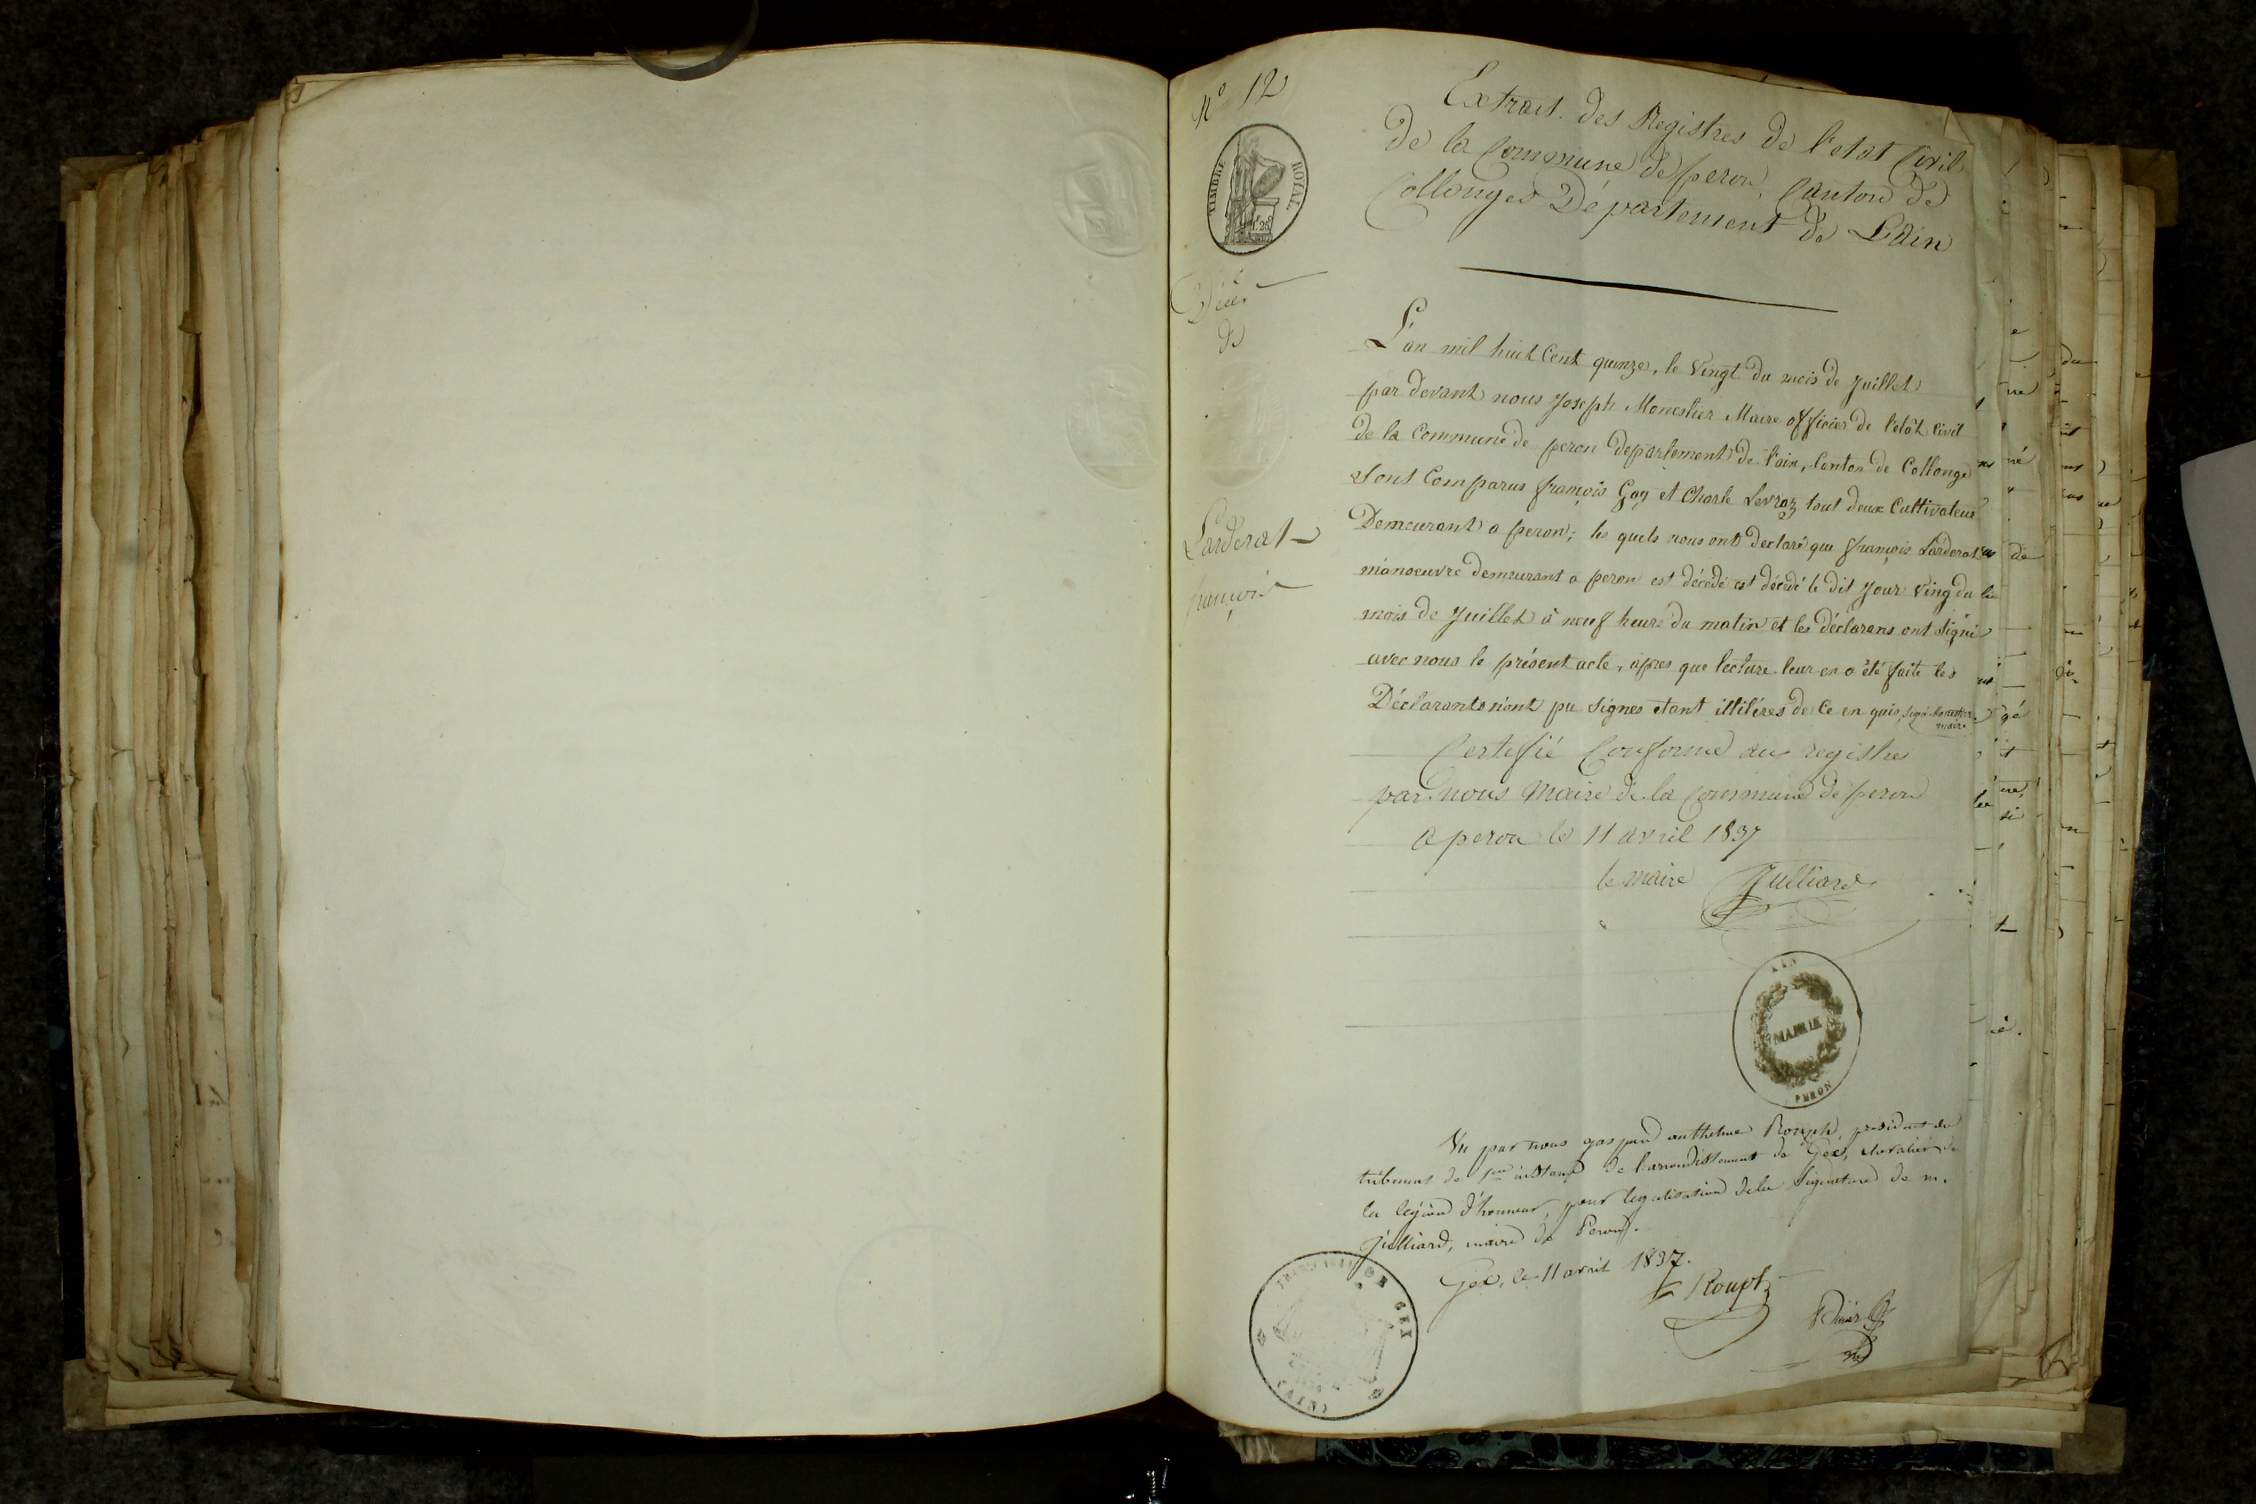 N° 12
TIMBRE ROYAL
Extrait des Registres de l'etat Civil
de la Commune de peron, Canton de
Collonges Département de L'ain
Décès
de
Larderat
françois
L'an mil huit Cent quinze, le Vingt du mois de Juillet
par devant nous Joseph Monestier Maire officier de l'etât Civil
de la Commune de peron departement de l'ain, Canton de Collonge
sont Comparus françois Gay et Charle Levraz tout deux Cultivateur
Demeurant a peron; les quels nous ont declaré que françois Larderat
manoeuvre demeurant a peron est décédé est décédé le dit Jour Ving du
mois de Juillet à neuf heure du matin et les déclarans ont signé
avec nous le présent acte, après que lecture leur en a été faite les
Déclarants n'ont pu signes etant illiléres de Ce enquis, signé Monestier
maire
Certiffié Conforme au registre
par nous Maire de la Commune de peron
a peron le 11 avril 1837
le maire Julliard
AIN
MAIRIE
PERON
Vu par nous gaspard anthelme Rouph, président du
tribunal de 1ere instance de l'arrondissement de Gex, chevalier de
la légion d'honneur, pour legalisation de la Signature de m.
Julliard, maire de Peron.
Gex, le 11 avril 1837.
Rouph
DE GEX
(AIN)